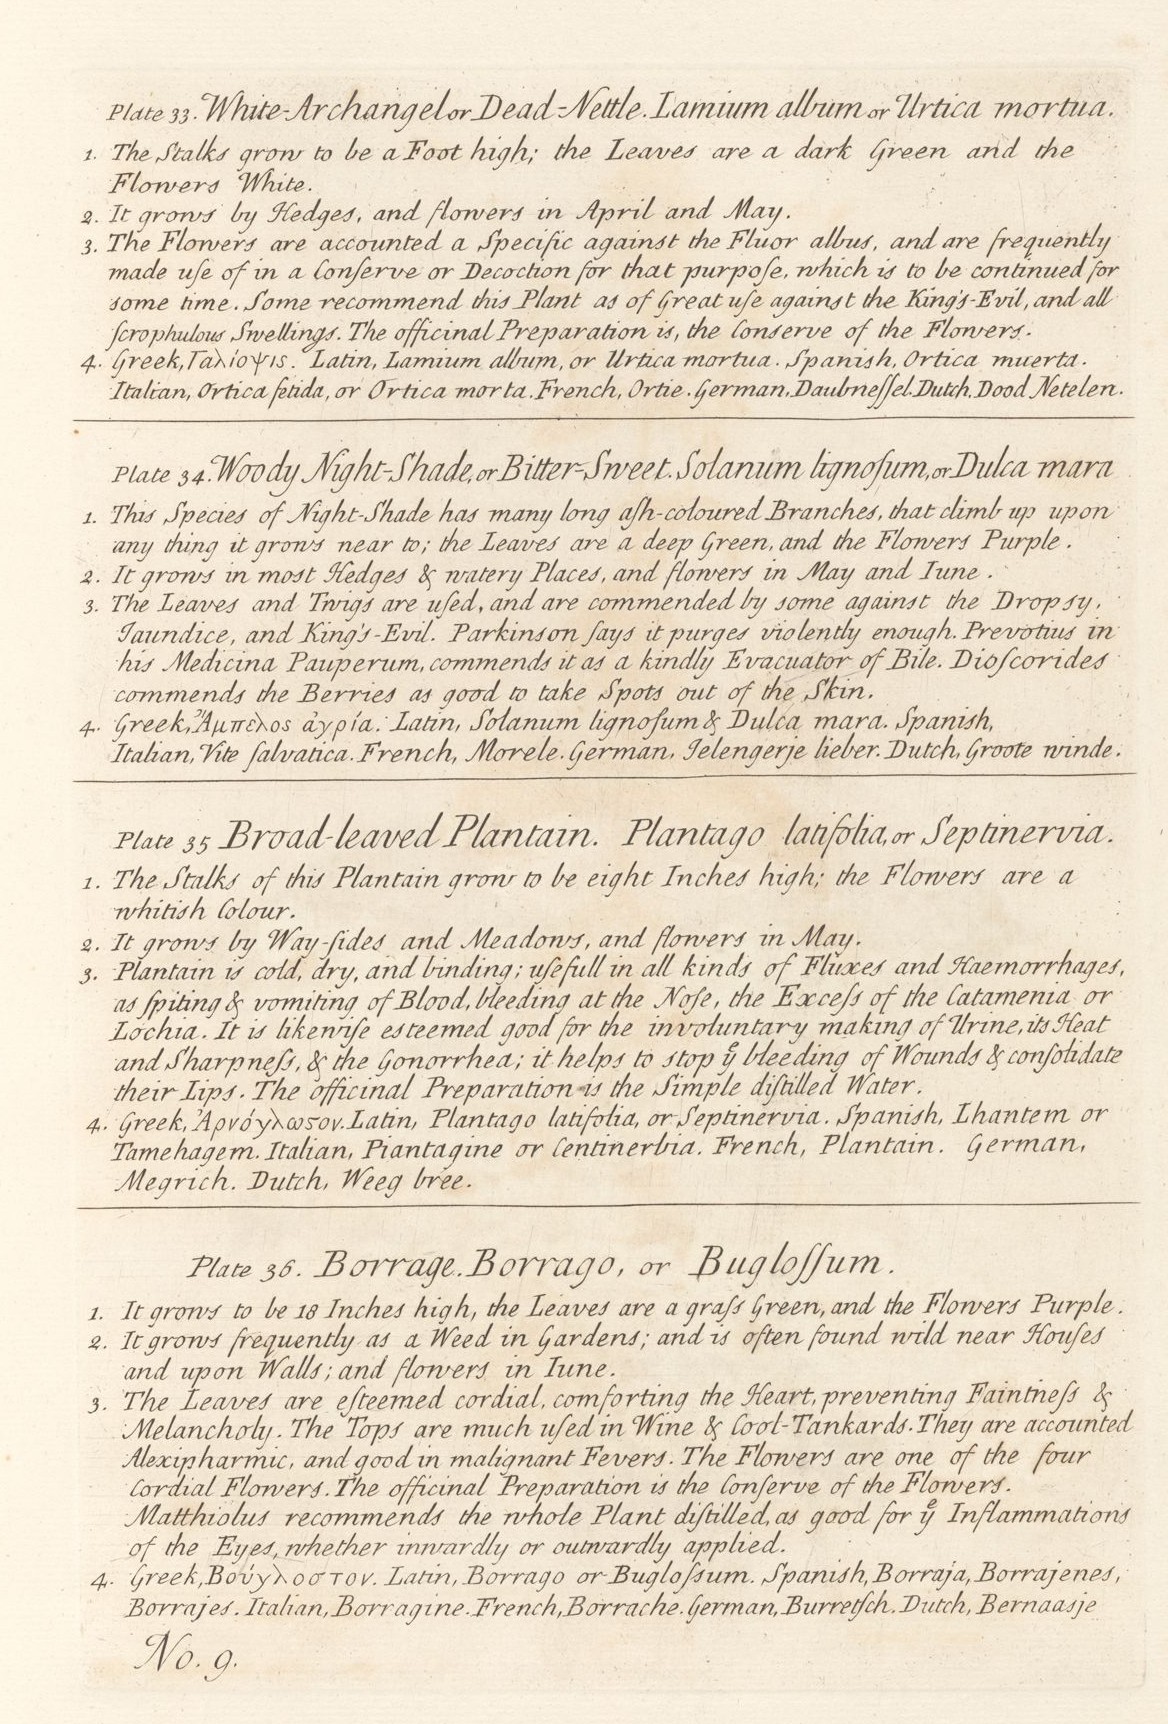 Plate 33. White-Archangel or Dead-Nettle. Lamium album or Urtica mortua.
1. The Stalks grow to be a Foot high; the Leaves are a dark Green and the
Flowers White.
2. It grows by Hedges, and flowers in April and May.
3. The Flowers are accounted a Specific against the Fluor albus, and are frequently
made uſe of in a Conſerve or Decoction for that purpoſe, which is to be continued for
some time. Some recommend this Plant as of Great uſe against the King's-Evil, and all
ſcrophulous Swellings. The officinal Preparation is, the Conserve of the Flowers.
4. Greek, Γαλίοψις. Latin, Lamium album, or Urtica mortua. Spanish, Ortica muerta.
Italian, Ortica fetida, or Ortica morta. French, Ortie. German, Daubneſſel. Dutch, Dood Netelen.
Plate 34. Woody Night-Shade, or Bitter-Sweet. Solanum lignoſum, or Dulca mara
1. This Species of Night-Shade has many long aſh-coloured Branches, that climb up upon
any thing it grows near to; the Leaves are a deep Green, and the Flowers Purple.
2. It grows in most Hedges & watery Places, and flowers in May and Iune.
3. The Leaves and Twigs are uſed, and are commended by some against the Dropsy,
Jaundice, and King's-Evil. Parkinson ſays it purges violently enough. Prevotius in
his Medicina Pauperum, commends it as a kindly Evacuator of Bile. Dioſcorides
commends the Berries as good to take Spots out of the Skin.
4. Greek, Ἄμπελος ἀγρία. Latin, Solanum lignoſum & Dulca mara. Spanish,
Italian, Vite ſalvatica. French, Morele. German, Ielengerje lieber. Dutch, Groote winde.
Plate 35 Broad-leaved Plantain. Plantago latifolia, or Septinervia.
1. The Stalks of this Plantain grow to be eight Inches high; the Flowers are a
whitish Colour.
2. It grows by Way-ſides and Meadows, and flowers in May.
3. Plantain is cold, dry, and binding; uſefull in all kinds of Fluxes and Haemorrhages,
as ſpiting & vomiting of Blood, bleeding at the Noſe, the Exceſs of the Catamenia or
Lochia. It is likewiſe esteemed good for the involuntary making of Urine, its Heat
and Sharpneſs, & the Gonorrhea; it helps to stop yͤ bleeding of Wounds & conſolidate
their Lips. The officinal Preparation is the Simple diſtilled Water.
4. Greek, Ἀρνόγλωσον. Latin, Plantago latifolia, or Septinervia. Spanish, Lhantem or
Tamehagem. Italian, Piantagine or Centinerbia. French, Plantain. German,
Megrich. Dutch, Weeg bree.
Plate 36. Borrage. Borrago, or Bugloſſum.
1. It grows to be 18 Inches high, the Leaves are a graſs Green, and the Flowers Purple.
2. It grows frequently as a Weed in Gardens; and is often found wild near Houſes
and upon Walls; and flowers in Iune.
3. The Leaves are eſteemed cordial, comforting the Heart, preventing Faintneſs &
Melancholy. The Tops are much uſed in Wine & Cool-Tankards. They are accounted
Alexipharmic, and good in malignant Fevers. The Flowers are one of the four
Cordial Flowers. The officinal Preparation is the Conſerve of the Flowers.
Matthiolus recommends the whole Plant diſtilled, as good for yͤ Inflammations
of the Eyes, whether inwardly or outwardly applied.
4. Greek, Βούγλοστον. Latin, Borrago or Bugloſsum. Spanish, Borraja, Borrajenes,
Borrajes. Italian, Borragine. French, Borrache. German, Burretſch. Dutch, Bernaasje
No. 9.